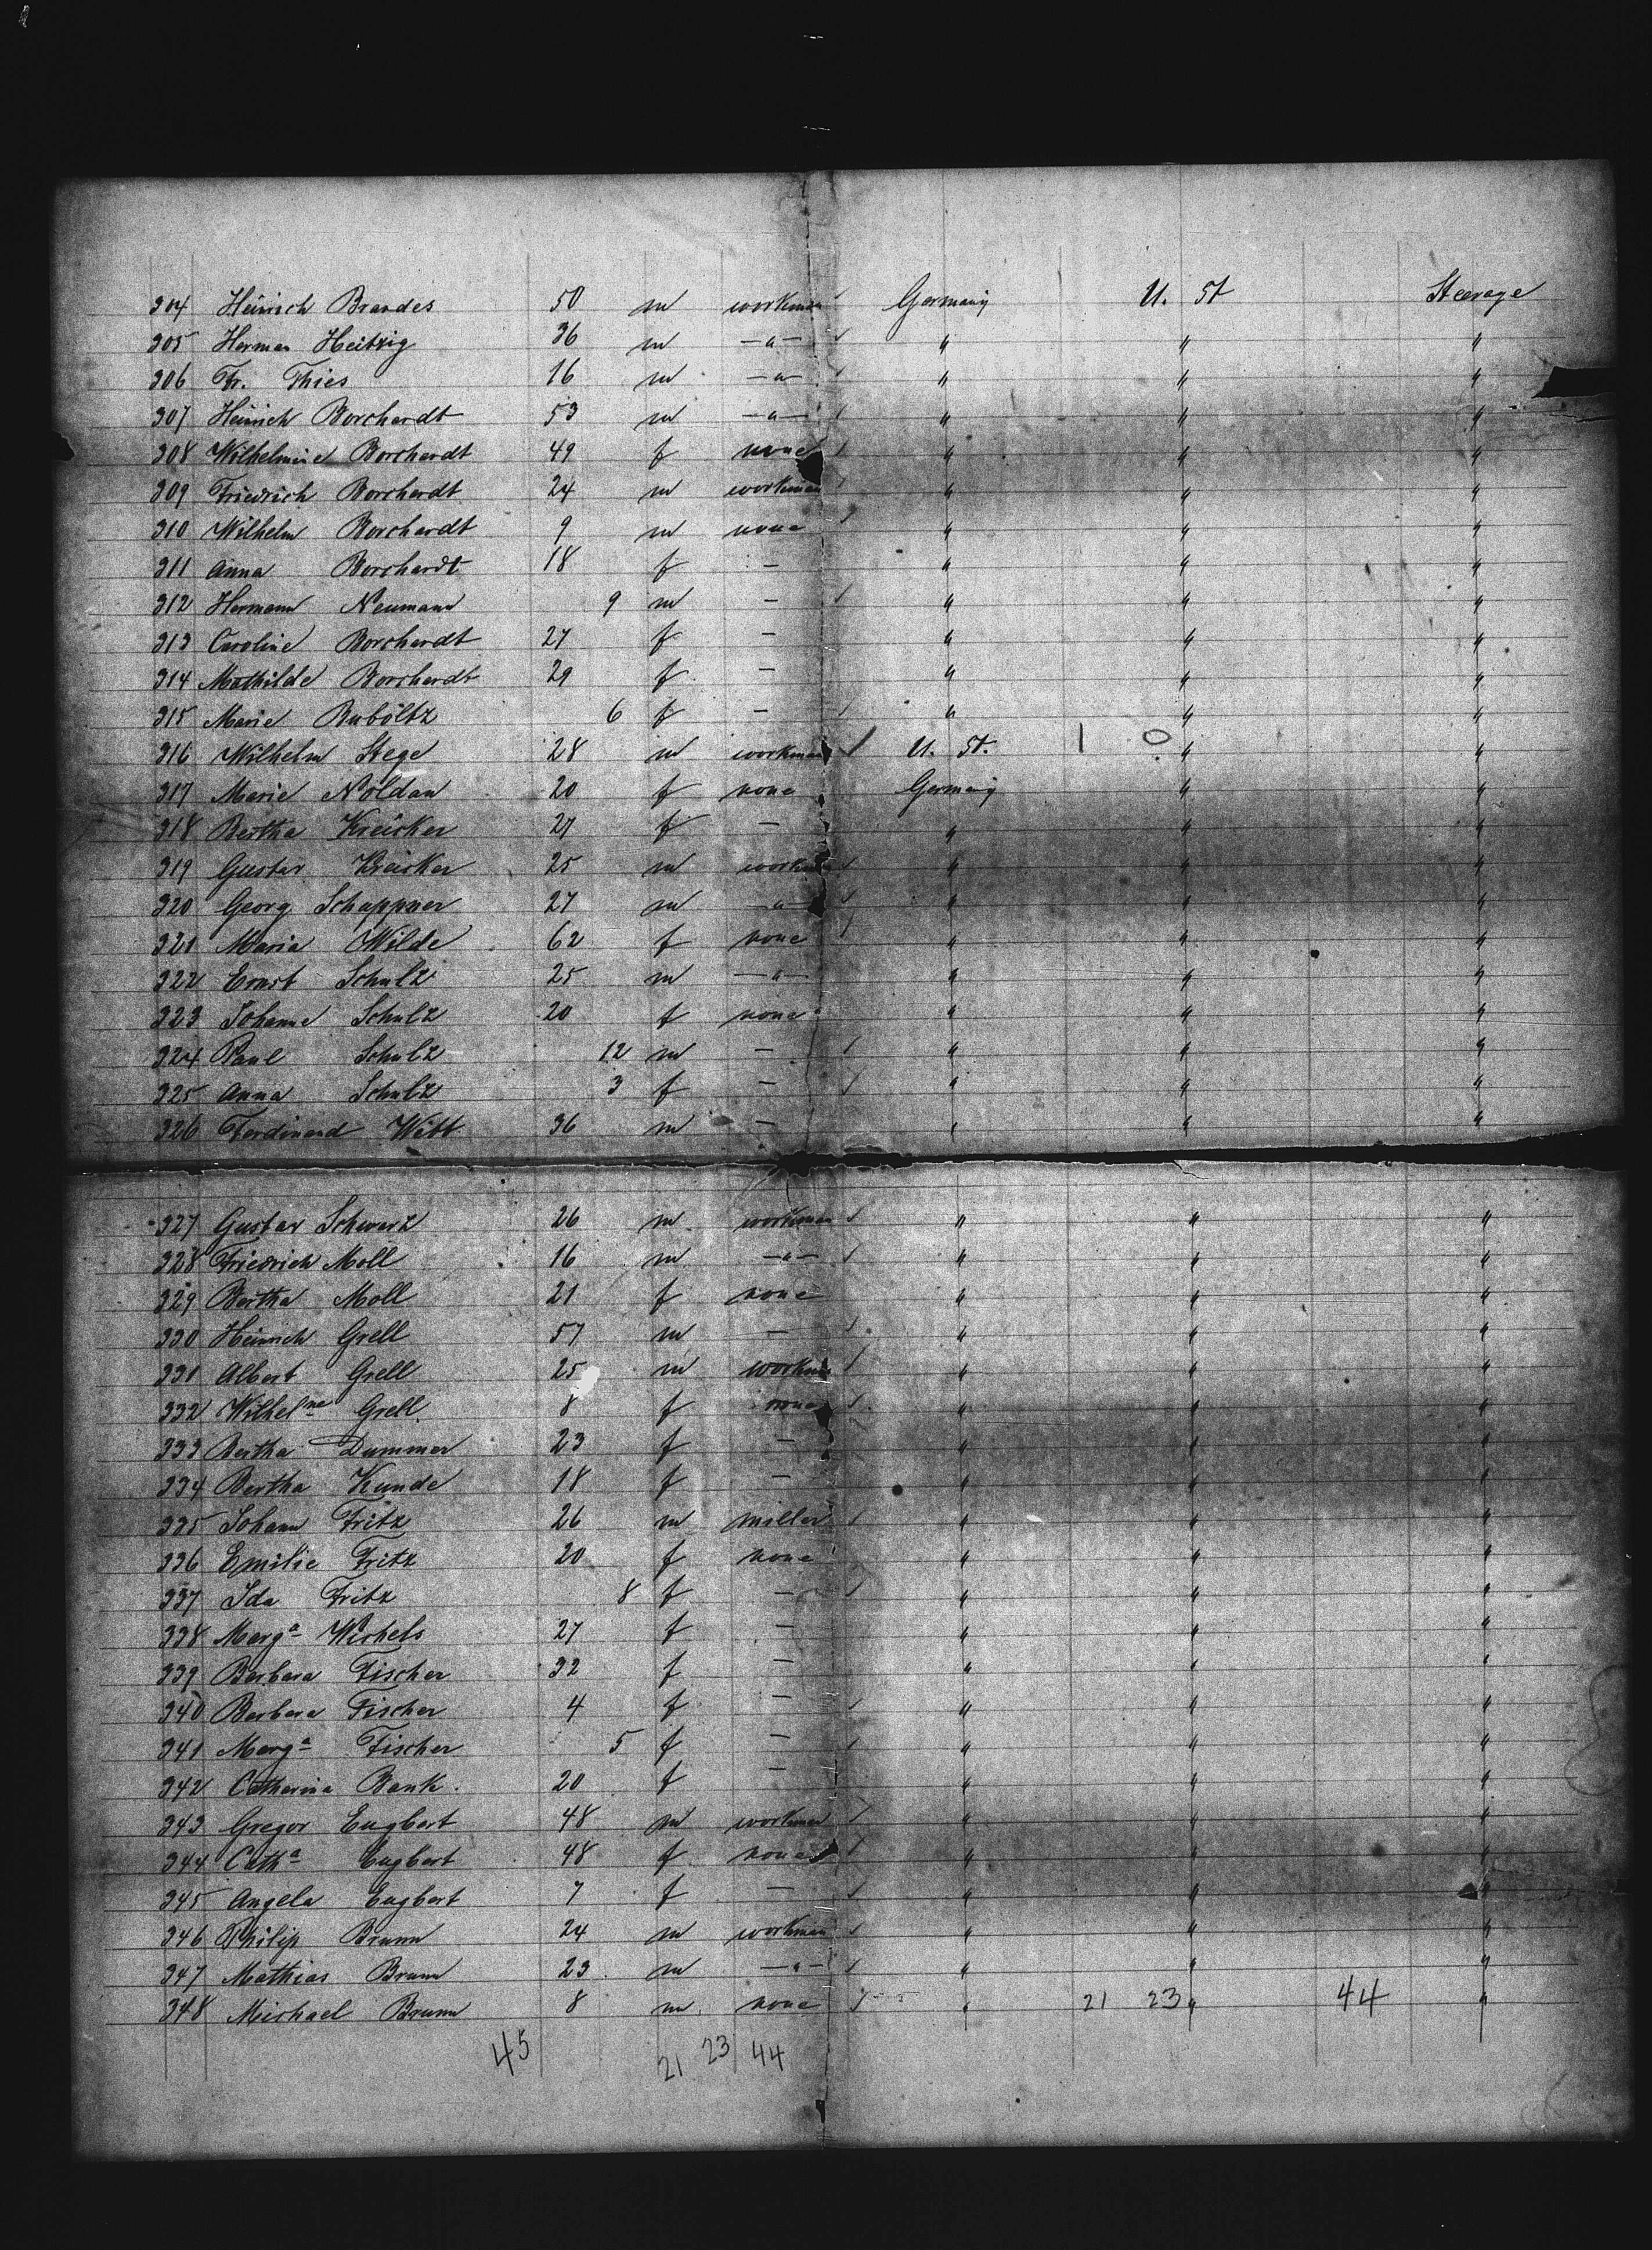 304 Heinrich Brandes 50 m workman Germany U. St Steerage
305 Herman Heitzig 36 m —"— " " "
306 Fr. Thies 16 m —"— " " "
307 Heinrich Borchardt 53 m —"— " " "
308 Wilhelmine Borchardt 49 f none " " "
309 Friedrich Borchardt 24 m workman " " "
310 Wilhelm Borchardt 9 m none " " "
311 Anna Borchardt 18 f — " " "
312 Hermann Neumann 9 m — " " "
313 Caroline Borchardt 27 f — " " "
314 Mathilde Borchardt 29 f — " " "
315 Marie Buboltz 6 f — " " "
316 Wilhelm Stege 28 m workman U. St. 1 0 " "
317 Marie Noldan 20 f none Germany " "
318 Bertha Kreicker 27 f — " " "
319 Gustav Kreicker 25 m workman " " "
320 Georg Schuppner 27 m —"— " " "
321 Maria Wilde 62 f none " " "
322 Ernst Schulz 25 m —"— " " "
323 Johanne Schulz 20 f none " " "
324 Paul Schulz 12 m — " " "
325 Anna Schulz 3 f — " " "
326 Ferdinand Witt 36 m — " " "
327 Gustav Schwarz 26 m workman " " "
328 Friedrich Moll 16 m —"— " " "
329 Bertha Moll 21 f none " " "
330 Heinrich Grell 57 m — " " "
331 Albert Grell 25 m workman " " "
332 Wilhelne Grell 8 f none " " "
333 Bertha Dummer 23 f — " " "
334 Bertha Kunde 18 f — " " "
335 Johann Fritz 26 m miller " " "
336 Emilie Fritz 20 f none " " "
337 Ida Fritz 8 f — " " "
338 Marga Wichels 27 f — " " "
339 Barbara Fischer 32 f — " " "
340 Barbara Fischer 4 f — " " "
341 Marga Fischer 5 f — " " "
342 Catharina Bank. 20 f — " " "
343 Gregor Engbert 48 m workman " " "
344 Catha Engbert 48 f none " " "
345 Angela Engbert 7 f — " " "
346 Philip Brunn 24 m workman " " "
347 Mathias Brunn 23 m —"— " " "
348 Michael Brunn 8 m none " 21 23 " 44 "
45 21 23 44